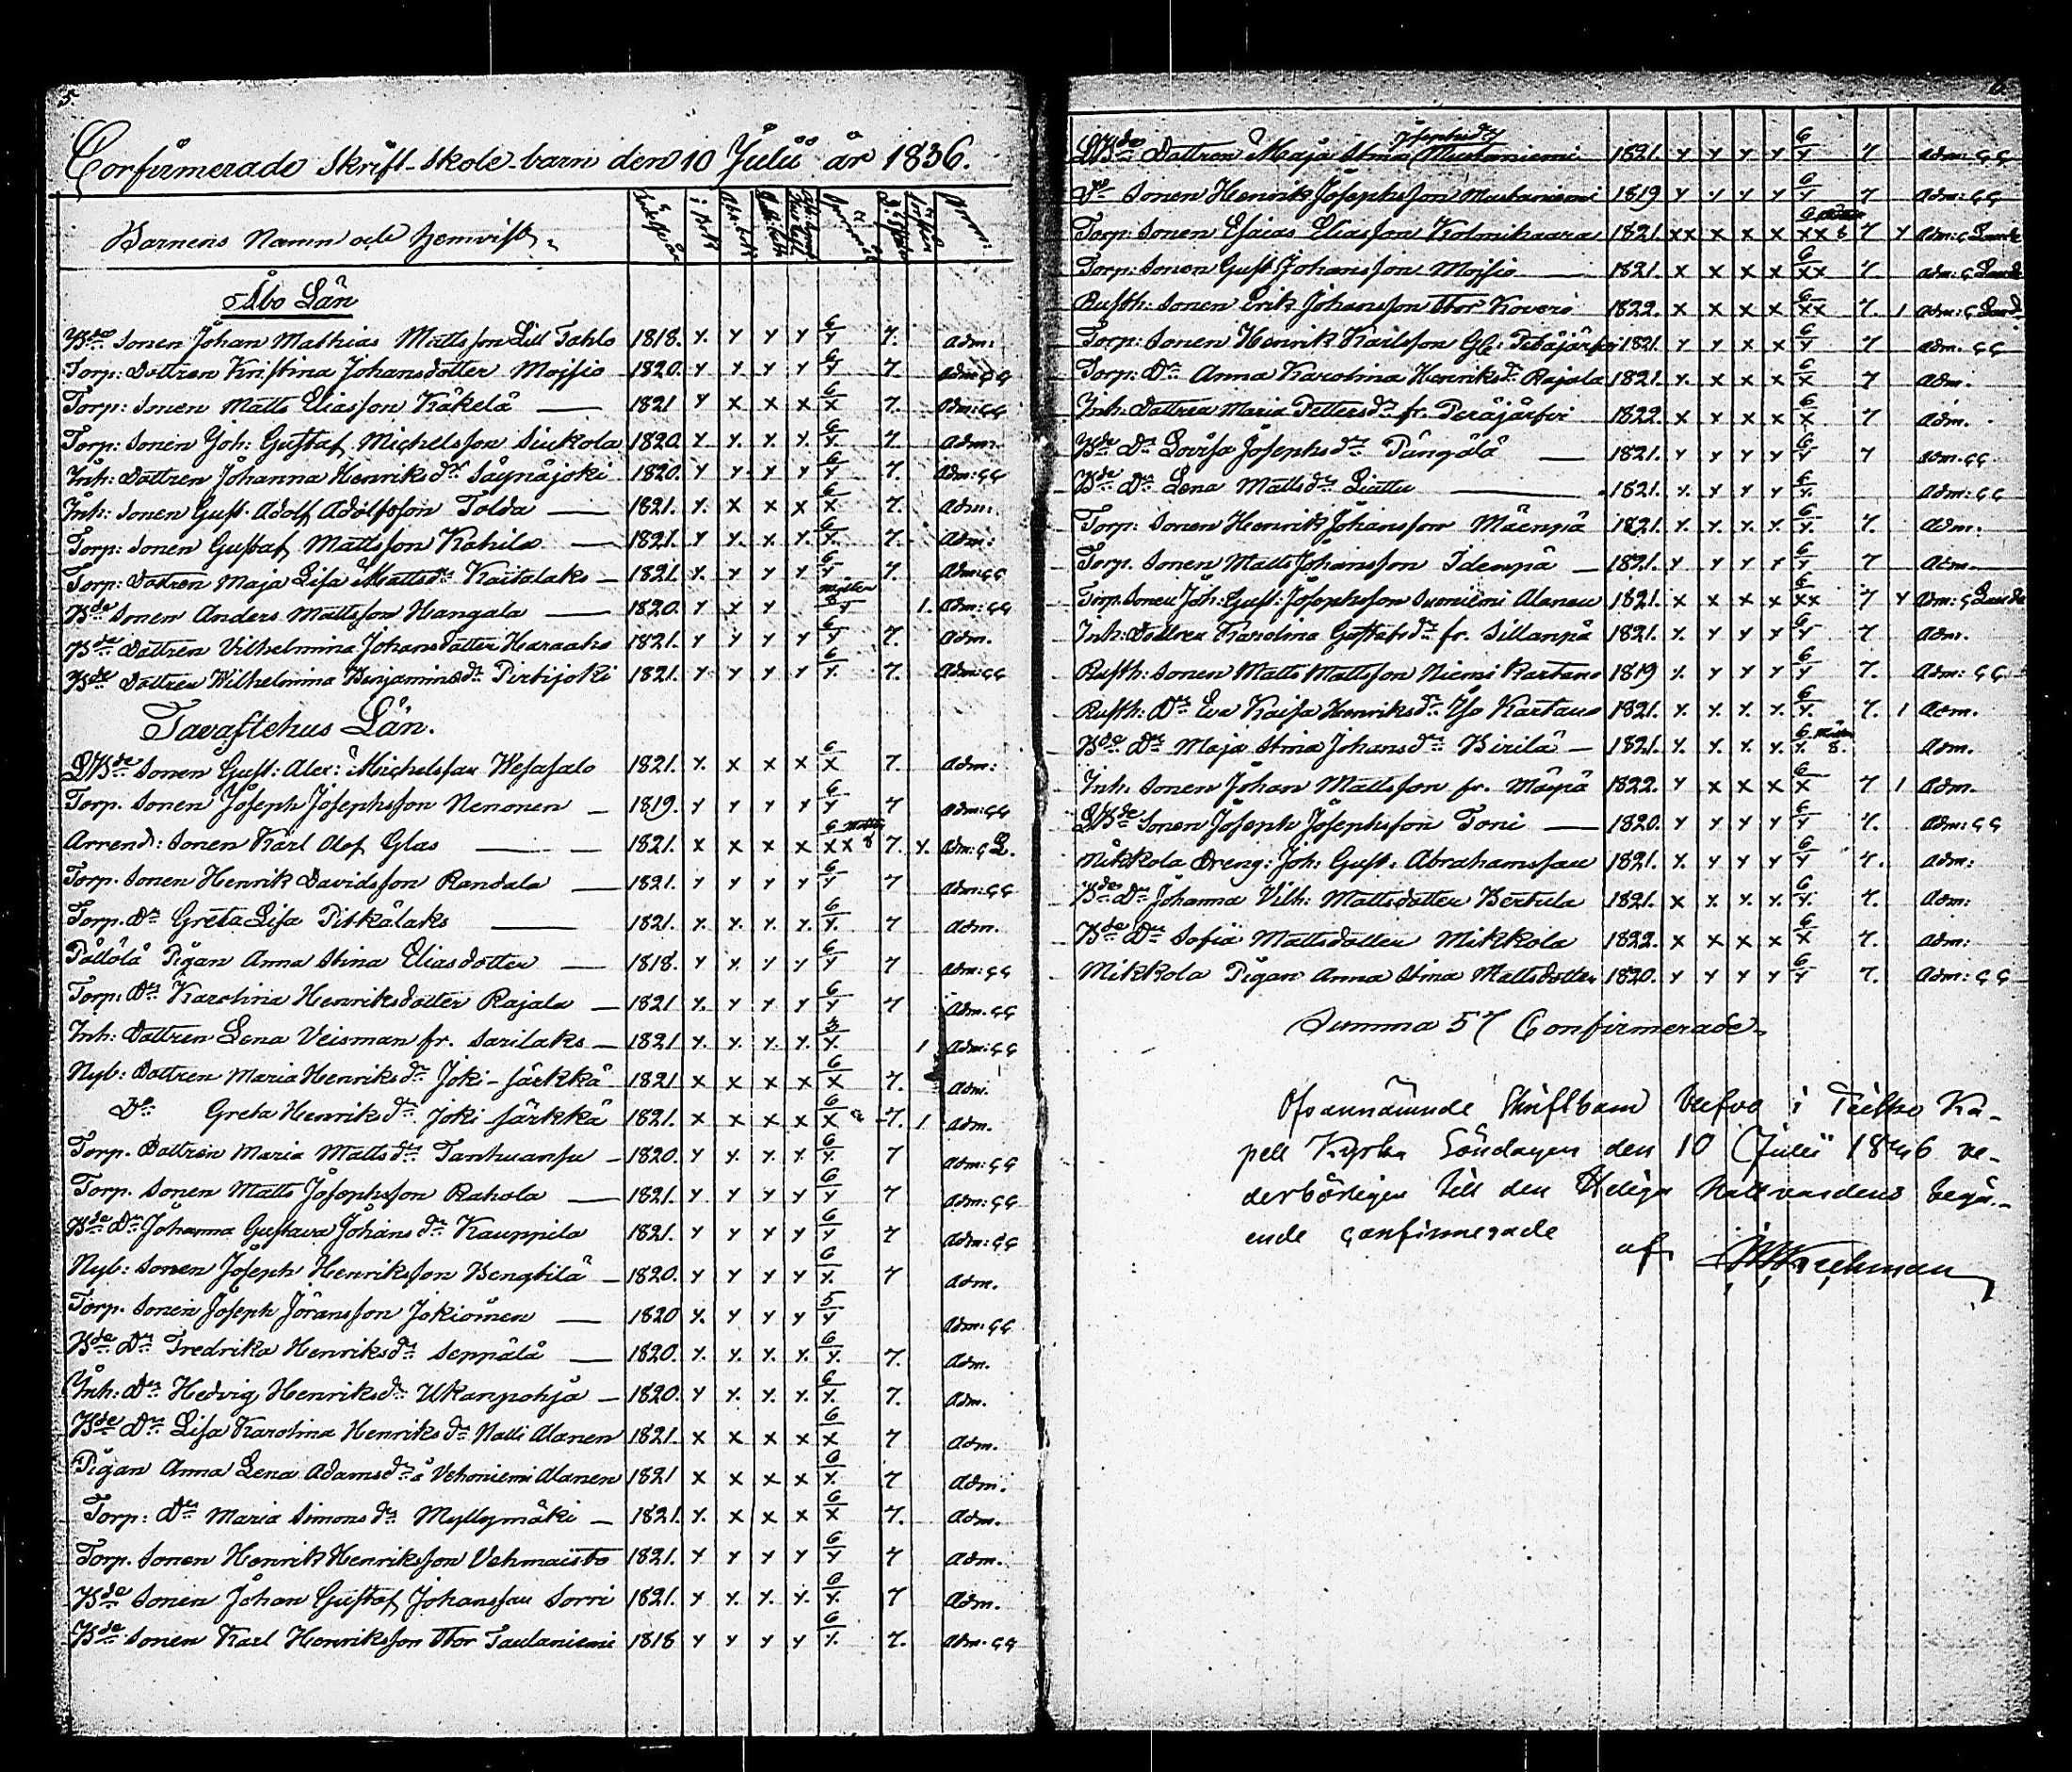 5
Confirmerade Skrift-Skole-barn den 10 Julii år 1836.
Barnens Namn och hemvist
i Bok Abc bok
Åbo Län
Bde Sonen Johan Mathias Mattsson Lill Tahlo 1818. x x x x 6/x 7. adm:
Torp: Dottren Kristina Johansdotter Mojsio 1820. x x x x 6/x 7. adm: çç
Torp: Sonen Matts Eliasson Käkelä — 1821 x x x x 6/x 7. adm: çç
Torp: Sonen Joh: Gustaf Michelsson Siukola 1820. x x. x. x. 6/x. 7. adm.
Inh: Dottren Johanna Henriksdr Säynäjoki 1820. x x x x 6/x 7. adm: çç
Inh: Sonen Gust. Adolf Adolfsson Tolda — 1821. x. x x x 6/x 7. adm:
Torp: Sonen Gustaf Mattsson Kahila — 1821. x x. x x. 6/x. 7. adm:
Torp: Dottren Maja Lisa Mattsdr Kaitalaks — 1821. x. x x x 6/x 7. adm: çç
Bde Sonen Anders Mattsson Hangala — 1820. x x x 8/x 1. adm: çç
Bde Dottren Vilhelmina Johansdotter Haraaho 1821. x x x x 6/x 7. adm.
Bde Dottren Wilhelmina Benjaminsdr Pirtijoki 1821. x. x x x 6/x. 7. adm: çç
Tavastehus Län.
LBde Sonen Gust: Alex: Michelsson Wesasalo 1821. x. x x x 6/x 7. adm:
Torp. Sonen Joseph Josephsson Nenonen — 1819. x x x x 6/x 7 adm: çç
Arrend: Sonen Karl Alof Glas — — 1821. x x x x 6/xx 8 7. x. adm: ç L.
Torp. Sonen Henrik Davidsson Randala — 1821. x x x x 6/x 7 adm: çç
Torp. Dr Greta Lisa Pitkälaks — 1821. x. x. x. x. 6/x. 7 adm.
Pällölä Pigan Anna Stina Eliasdotter — 1818. x x. x x 6/x 7 adm: çç
Torp: Dr Karolina Henriksdotter Rajala — 1821 x. x x x 6/x 7 adm. çç
Inh: Dottren Lena Veisman fr. Sarilaks — 1821 x. x. x. x. 3/x. 1 adm: çç
Nyb: Dottren Maria Henriksdr Joki-Särkkä 1821 x x x x 6/x 7. adm.
Do Greta Henriksdr Joki Särkkä 1821. x x x x 6/x 7. 1 adm.
Torp. Dottren Maria Mattsdr Tanhuansu — 1820. x x. x. x 6/x. 7 adm: çç
Torp. Sonen Matts Josephsson Rahola — 1821. x x x x 6/x 7 adm: çç
Bde Dr Johanna Gustava Johansdr Kauppila 1821. x x x x 6/x 7 adm: çç
Nyb: Sonen Joseph Henriksson Bengtilä — 1820. x x x x 6/x. 7 adm.
Torp. Sonen Joseph Göransson Jokioinen — 1820 x. x x x 5/x adm: çç
Bde Dr Fredrika Henriksdr Seppälä — 1820. x. x. x. x. 6/x. 7. adm.
Inh: Dr Hedvig Henriksdr Ukanpohja — 1820. x x. x. x. 6/x. 7. adm.
Bde Dr Lisa Karolina Henriksdr Natti Alanen 1821. x x x x 6/x 7 adm.
Pigan Anna Lena Adamsdr å Vehoniemi Alanen 1821 x x x x 6/x. 7 adm.
Torp: Dr Maria Simonsdr Myllymäki — 1821. x. x x x 6/x 7. adm.
Torp. Sonen Henrik Henriksson Vehmaisto 1821. x x x x 6/x 7 adm.
Bde Sonen Johan Gustaf Johansson Sorri 1821. x x. x. x. 6/x. 7 adm.
Bde Sonen Karl Henriksson Stor Taulaniemi 1818 x x x x 6/x. 7. adm. çç
LBde Dottren Maja Stina Josephsdr Mustaniemi 1821. x x x x 6/x 7 adm: çç
Do Sonen Henrik Josephsson Mustaniemi 1819 x x x x 6/x 7 adm: çç
Torp: Sonen Esaias Eliasson Kolmihaara 1821. xx x x x 6/xx 8 7 x adm: ç Laude
Torp: Sonen Gust. Johansson Mojsio — 1821. x x x x 6/xx 7. adm: ç Laude
Rusth: Sonen Erik Johansson Stor Kovero 1822. x x x x 6/xx 7. 1 adm: ç Laud.
Torp: Sonen Henrik Karlsson Gl: Peräjärfvi 1821. x x x x 6/x 7 adm. çç
Torp: Dr Anna Karolina Henriksdr Rajala 1821. x. x x x 6/x 7 adm.
Inh: Dottren Maria Pettersdr fr. Peräjärfvi 1822. x x x x 6/x 7 adm.
Bde Dr Lovisa Josephsdr Pängälä — 1821. x x x x 6/x 7 adm. çç
Bde Dr Lena Mattsdr Liattu — 1821. x. x x x 6/x. adm: çç
Torp: Sonen Henrik Johansson Mäenpä 1821. x. x. x. x. 6/x. 7. adm.
Torp. Sonen Matts Johansson Idempä — 1821. x x x x 6/x 7 adm.
Torp. Sonen Joh: Gust: Josephsson Suoniemi Alanen 1821. x x x x 6/xx 7 x adm: ç Laude
Inh: Dottren Karolina Gustafsdr fr. Sillanpä 1821. x. x x x 6/x 7 adm.
Rusth: Sonen Matts Mattsson Niemi Kartano 1819 x. x x x 6/x 7. adm: çç
Rusth: Dr Eva Kaisa Henriksdr Iso Kartano 1821. x. x. x. x. 6/x. 7. 1 adm.
Bde Dr Maja Stina Johansdr Birilä — 1821. x. x. x. x. 6/x. 8. adm.
Inh. Sonen Johan Mattsson fr. Mäypä 1822. x x x x 6/x 7 1 adm.
LBde Sonen Joseph Josephsson Toni — 1820. x x x x 6/x 7. adm: çç
Mikkola Dreng: Joh: Gust: Abrahamsson 1821. x. x x x 6/x 7. adm:
Bde Dr Johanna Vilh: Mattsdotter Bertula 1821. x x. x. x. 6/x. 7. adm:
Bde Dr Sofia Mattsdotter Mikkola 1822. x x x x 6/x 7. adm:
Mikkola Pigan Anna Stina Mattsdotter 1820. x x x x 6/x 7. adm: çç
Summa 57 Confirmerade.
Ofvannämnde Skriftbarn blefvo i Teisko Ka-
pell Kyrka Söndagen den 10 Julii 1836 ve-
derbörligen till den Heliga Nattvardens begå-
ende confirmerade
af